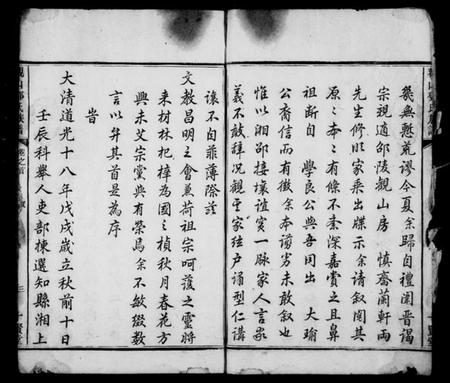 幾無愆荒謬今夏余歸自禮闈晉謁
宗祝過邵陵觀山房 慎齋蘭軒兩
先生修明家乘出牒示余請叙閱其
原原本本有條不紊深嘉賞之且鼻
祖斷自 學良公與吾同出 大瑜
公裔信而有徵余本譾劣未敢叙也
惟以湘邵接壤誼實一脉家人言家
義不敢辭况觀 家弦户誦型仁講
讓不自菲薄際茲
文教昌明之會兼荷祖宗呵護之靈將
來材林杞梓為國之楨秋月春花方
興未艾宗黨與有榮焉余不敏綴數
言以弁其首是為序
旹
大清道光十八年戊戌歲立秋前十日
壬辰科舉人吏部揀選知縣湘上